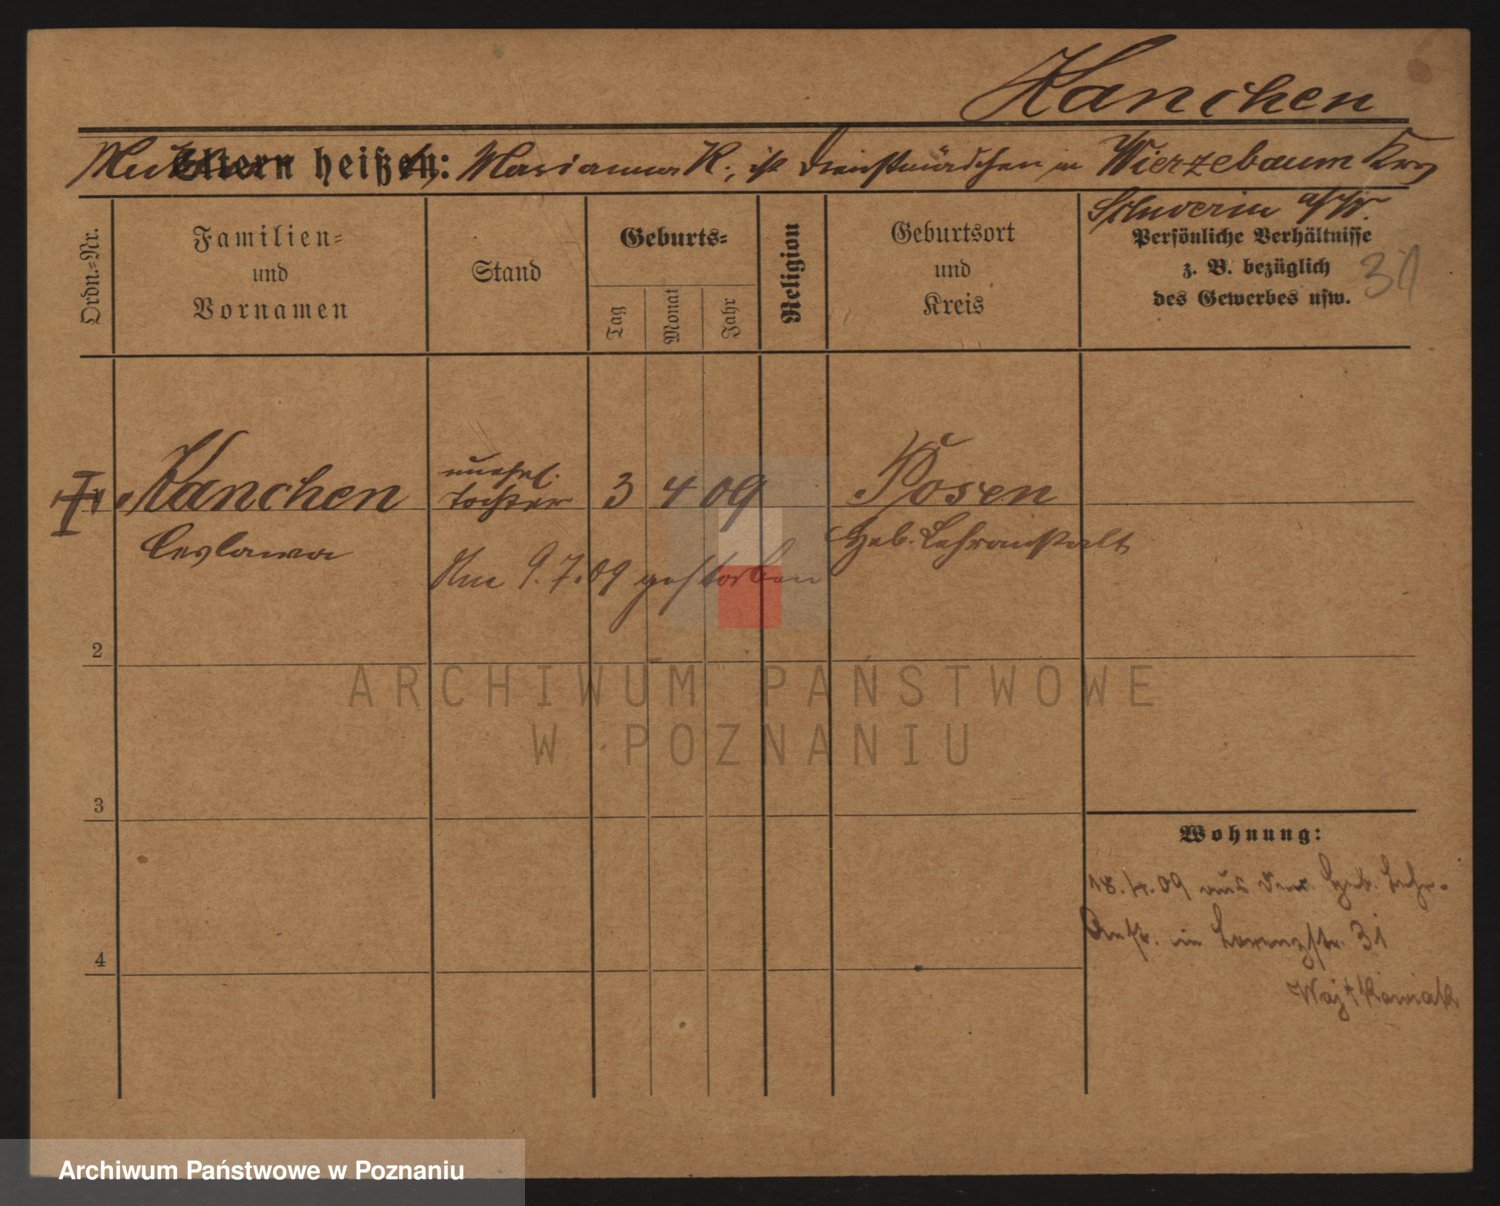 Kanchen
Mutter Eltern heißen: Marianna K., ist Dienstmädchen in Wierzebaum Krs
Schwerin a/W.
Ordn.-Nr.
Familien-
und
Vornamen
Stand
Geburts-
Tag
Monat
Jahr
Religion
Geburtsort
und
Kreis
Persönliche Verhältnisse
z. B. bezüglich
des Gewerbes usw.
31
1 Kanchen
Ceslawa
unehel.
Tochter
3 4 09
Posen
Heb. Lehranstalt
Am 9.7.09 gestorben
2
3
4
Wohnung:
18.4.09 aus der Heb. Lehr-
Anst. in Lorenzstr. 31
Wojtkowiak
ARCHIWUM PAŃSTWOWE
W POZNANIU
Archiwum Państwowe w Poznaniu